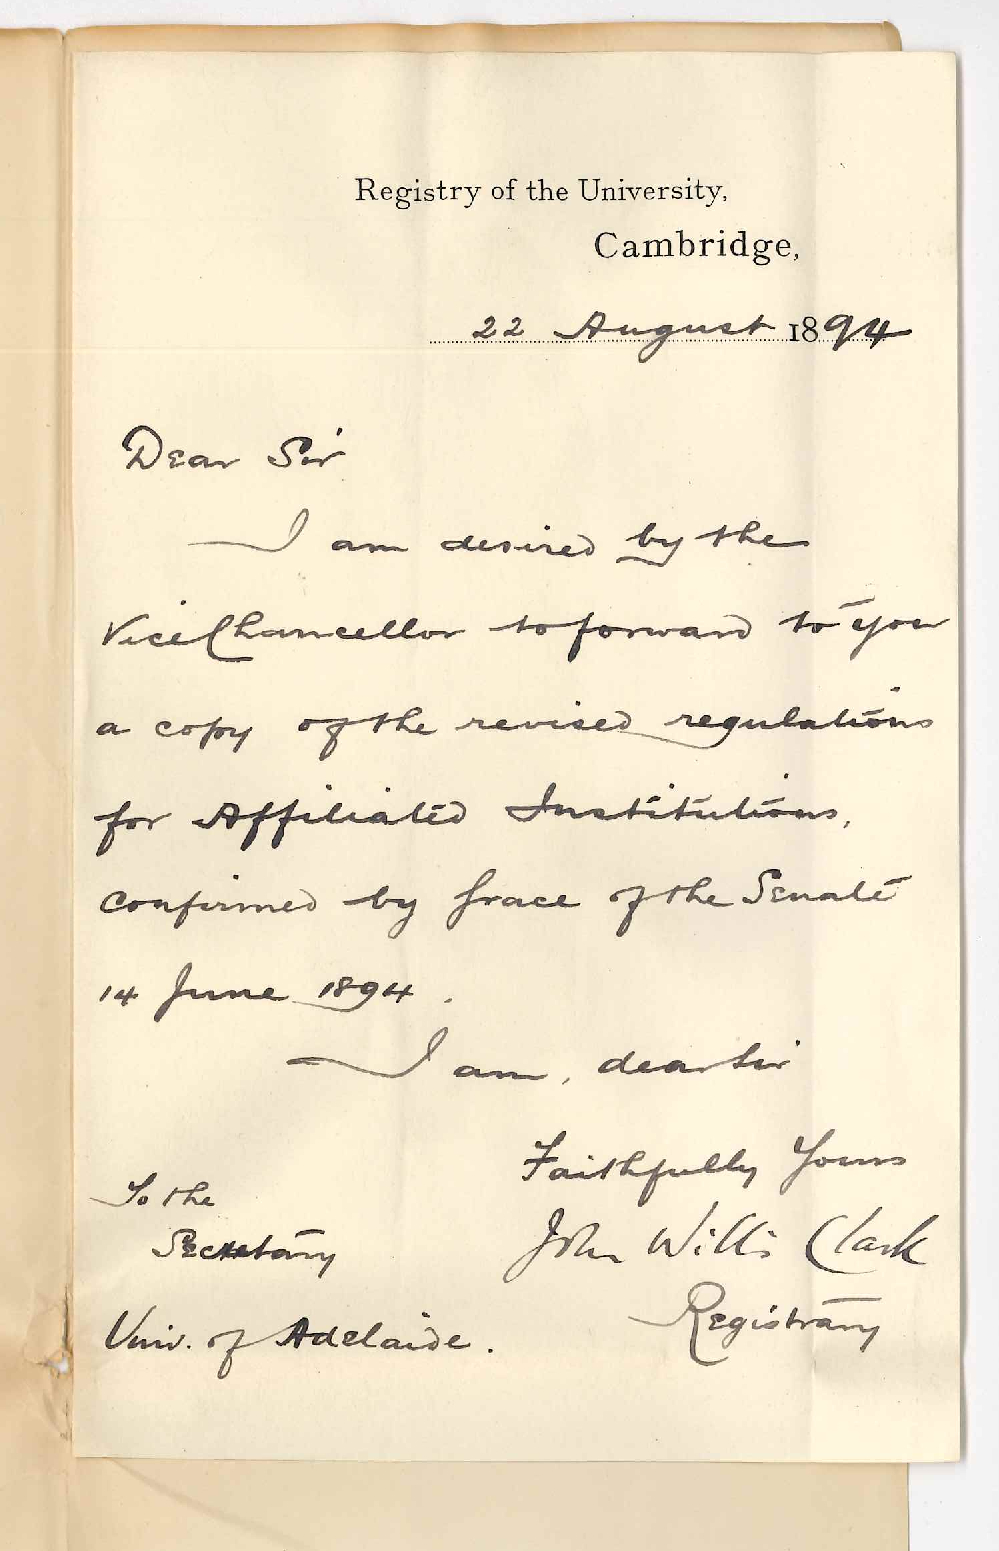 Registry of the University,
Cambridge,
22 August 1894
Dear Sir
I am desired by the
ViceChancellor to forward to you
a copy of the revised regulations
for Affiliated Institutions,
confirmed by Grace of the Senate
14 June 1894.
I am, dear Sir
Faithfully Yours
John Willis Clark
Registrary
To the
Secretary
Univ. of Adelaide.